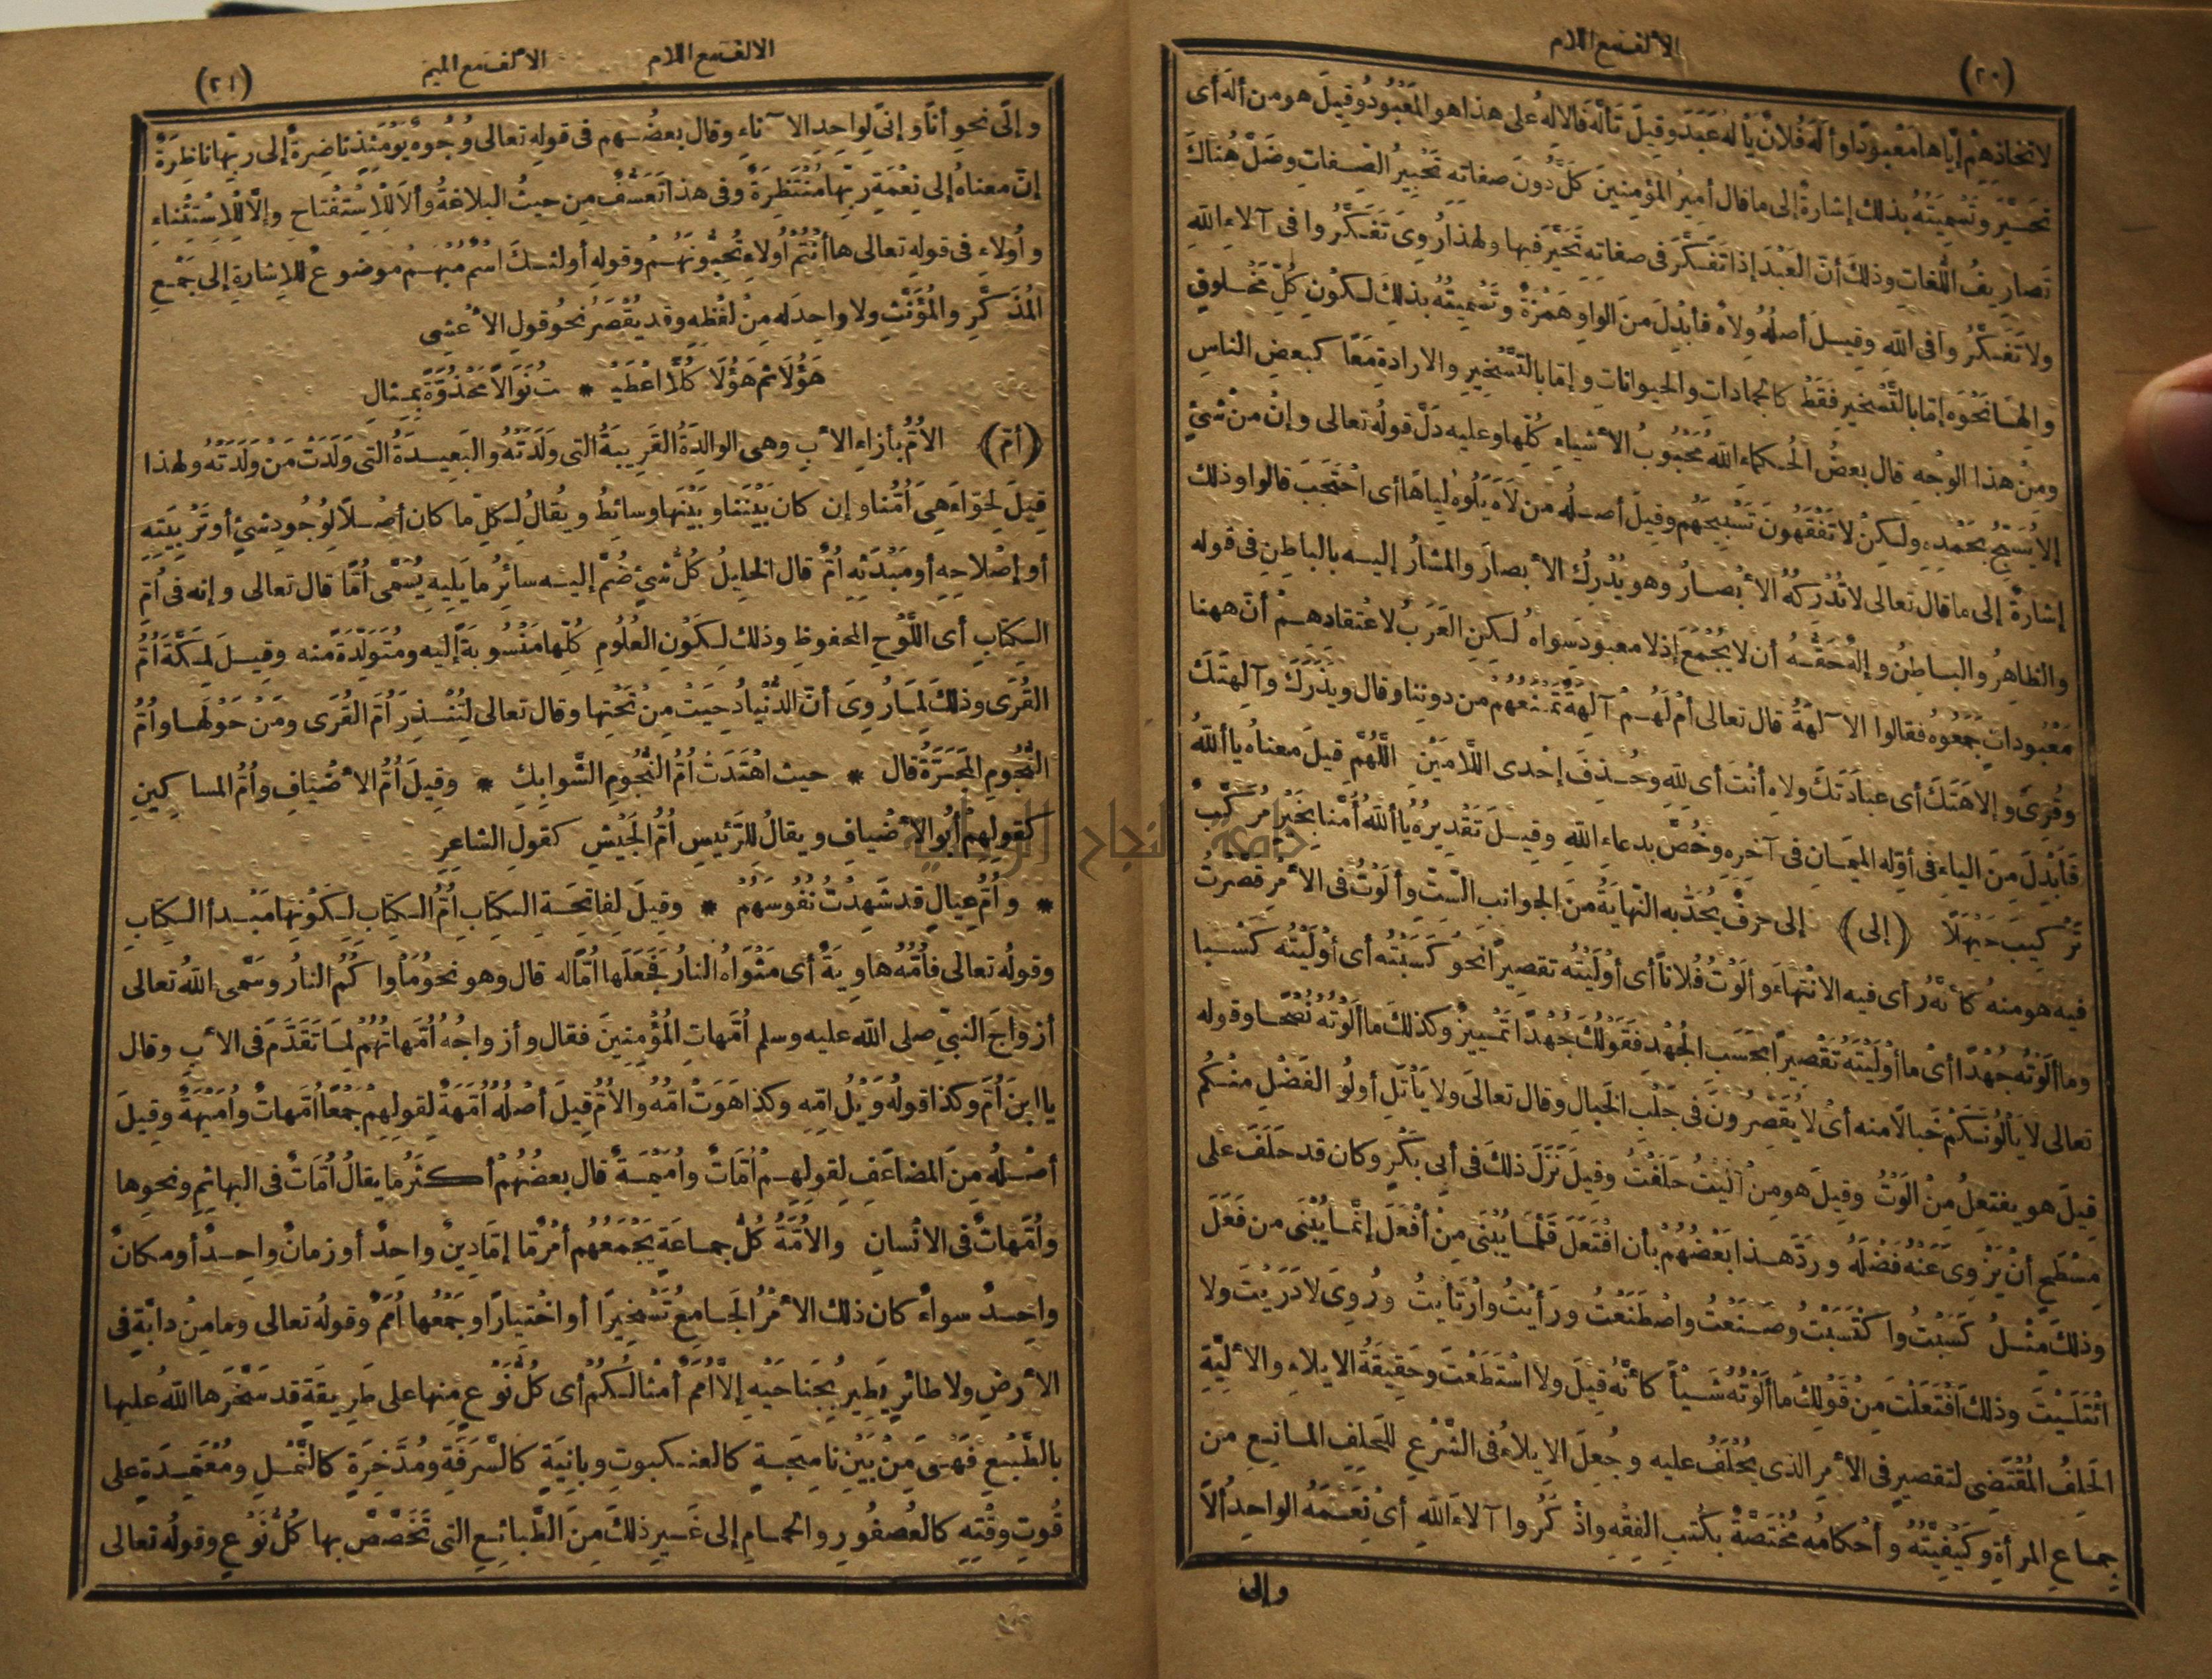 (٢٠)
الألف مع اللام
لاتخاذِهِمْ إيّاها مَعْبودًا وألَهَ فُلانٌ يألَهُ عَبَدَ وقِيلَ تَألَّهَ فالالهُ على هذا هو المَعْبُودُ وقِيلَ هو من ألَهَ أى
تَحَيَّرَ وتَسْمِيَتُهُ بذلك إشارةٌ إلى ما قال أميرُ المؤمنينَ كَلَّ دُونَ صفاتِهِ تَحْبِيرُ الصِّفاتِ وضَلَّ هُناكَ
تَصارِيفُ اللُّغاتِ وذلكَ أنّ العَبْدَ إذا تَفَكَّرَ فى صفاتِهِ تَحَيَّرَ فيها ولهذا رُوِىَ تَفَكَّرُوا فى آلاءِ اللهِ
ولا تَفَكَّرُوا فى اللهِ وقِيلَ أصلُهُ وِلاهٌ فأُبْدِلَ مِنَ الواوِ هَمْزَةٌ وتَسْمِيَتُهُ بذلكَ لِكَوْنِ كُلِّ مَخْلوقٍ
والِهًا نَحْوَه إمّا بالتَّسْخِيرِ فقَطْ كالجماداتِ والحيواناتِ وإمّا بالتَّسْخِيرِ والارادةِ مَعًا كبعضِ الناسِ
ومِنْ هذا الوجْهِ قال بعضُ الحُكماءِ اللهُ مَحْبُوبُ الأشياءِ كُلِّها وعليه دَلَّ قولُهُ تعالى وإنْ مِنْ شئٍ
إلا يُسَبِّحُ بحَمْدِهِ ولكِنْ لا تَفْقَهُونَ تَسْبِيحَهُم وقِيلَ أصلُه من لاهَ يَلُوهُ لِياهًا أى احْتَجَبَ قالوا وذلك
إشارةٌ إلى ما قال تعالى لا تُدْرِكُهُ الأبْصارُ وهو يُدْرِكُ الأبصارَ والمشارُ إليه بالباطِنِ فى قوله
والظاهِرُ والباطِنُ وإلهٌ حَقُّهُ أن لا يُجْمَعَ إذ لا معبودَ سِواهُ لكِنِ العَرَبُ لاعْتِقادِهِمْ أنّ ههنا
مَعْبُوداتٍ جَمَعُوهُ فقالوا الآلهةُ قال تعالى أمْ لَهُمْ آلِهَةٌ تَمْنَعُهُم من دوننا وقال ويَذَرَكَ وآلِهَتَكَ
وقُرِئَ وإلاهَتَكَ أى عِبادَتَكَ ولاهِ أنْتَ أى للهِ وحُذِفَ إحْدى اللّامَيْنِ اللَّهُمَّ قِيلَ معناهُ يا اللهُ
فأُبْدِلَ مِنَ الياءِ فى أوّلِه المِيمانِ فى آخِرِهِ وخُصَّ بدعاءِ اللهِ وقِيلَ تَقْدِيرُهُ يا اللهُ أُمَّنا بخَيْرٍ مُرَكَّبٌ
تَرْكِيبَ حَيَّهَلا (إلى) إلى حرفٌ يُحَدُّ به النِّهايَةُ مِنَ الجوانبِ السِّتِّ وألَوْتُ فى الأمْرِ قَصَّرْتُ
فيه هو منهُ كأنّه رأى فيه الانْتِهاءَ وألَوْتُ فُلاناً أى أوْلَيْتُه تقصيرًا نحوُ كَسَبْتُه أى أوْلَيْتُه كَسْبا
وما ألَوْتُه جُهْدًا أىْ ما أوْلَيْتُه تَقْصيرًا بحَسَبِ الجُهْدِ فقَوْلُكَ جُهْدًا تَمْيِيزٌ وكذلكَ ما ألَوْتُه نُصْحًا وقوله
تعالى لا يَألُونَكُمْ خَبالا منه أىْ لا يُقَصِّرُونَ فى جَلْبِ الخَبالِ وقال تعالى ولا يَأْتَلِ أولُو الفَضْلِ منْكُم
قِيلَ هو يفتعلُ مِنْ ألَوْتُ وقِيلَ هو مِنْ آلَيْتُ حَلَفْتُ وقِيلَ نَزَلَ ذلكَ فى أبى بَكْرٍ وكان قد حَلَفَ على
مِسْطَحٍ أنْ يَزْوِىَ عَنْهُ فَضْلَهُ ورَدَّ هذا بَعْضُهُمْ بأن افْتَعَلَ قَلَّما يُبْنَى مِنْ أفْعَلَ إنّما يُبْنَى من فَعَلَ
وذلكَ مِثْلُ كَسَبْتُ واكْتَسَبْتُ وصَنَعْتُ واصْطَنَعْتُ ورَأيْتُ وارْتَأيْتُ ورُوِىَ لا دَرَيْتَ ولا
ائْتَلَيْتَ وذلكَ افْتَعَلْتَ مِنْ قَوْلِكَ ما ألَوْتُهُ شَيْأً كأنّه قِيلَ ولا اسْتَطَعْتَ وحَقِيقَةُ الايلاءِ والألِيَّةِ
الحَلِفُ المُقْتَضِى لتقصيرٍ فى الأمْرِ الذى يُحْلَفُ عليه وجُعِلَ الايلاءُ فى الشَّرْعِ للحَلِفِ المانِعِ من
جِماعِ المرأةِ وكَيْفِيَّتُهُ وأحْكامُه مُخْتَصَّةٌ بكُتبِ الفِقْهِ واذْكُرُوا آلاءَ اللهِ أىْ نِعَمَهُ الواحِدُ ألًا
وإلى
(٢١)
الالف مع اللام الألف مع الميم
وإلًى نحو أنًا وإنًى لِواحِدِ الآناءِ وقال بعضُهم فى قولِه تعالى وُجُوهٌ يَوْمَئِذٍ ناضِرةٌ إلى ربّها ناظِرَةٌ
إنّ معناهُ إلى نِعْمَةِ ربّها مُنْتَظِرَةٌ وفى هذا تَعَسُّفٌ مِن حيثُ البلاغةُ وألا لِلاسْتِفْتاحِ وإلّا لِلاسْتِثْناءِ
وأُولاءِ فى قولِه تعالى ها أنْتُمْ أُولاءِ تُحِبُّونَهُمْ وقولِه أولئكَ اسْمٌ مُبْهَمٌ موضوعٌ للاشارةِ إلى جَمْعِ
المُذَكَّرِ والمُؤَنَّثِ ولا واحِدَ له مِنْ لَفْظِهِ وقد يُقْصَرُ نحوُ قولِ الأعْشى
هَؤُلا ثم هَؤُلا كُلًّا اعْطَيْـ * ـتُ نَوَالًا مَحْذُوَّةً بِمِثالِ
(أمّ) الأُمُّ بأزاءِ الأبِ وهى الوالِدَةُ القَرِيبَةُ التى ولَدَتْهُ والبَعِيدَةُ التى ولَدَتْ مَنْ ولَدَتْهُ ولهذا
قِيلَ لِحَوّاءَ هِىَ أُمُّنا وإن كان بَيْنَنا وبَيْنَها وسائِطُ ويُقالُ لِكلّ ما كان أصْلًا لِوُجُودِ شئٍ أو تَرْبِيَتِهِ
أو إصْلاحِهِ أو مَبْدَئِهِ أُمٌّ قال الخليلُ كُلُّ شئٍ ضُمَّ إليه سائِرُ ما يَلِيهِ يُسَمَّى أُمًّا قال تعالى وإنه فى أُمِّ
الكِتابِ أى اللَّوْحِ المحفوظِ وذلك لِكَوْنِ العُلُومِ كُلِّها مَنْسُوبَةً إليه ومُتَوَلِّدَةً منه وقِيلَ لِمَكّةَ أُمُّ
القُرَى وذلكَ لِمَا رُوِىَ أنّ الدُّنْيا دُحِيَتْ مِنْ تَحْتِها وقال تعالى لِتُنْذِرَ أُمَّ القُرَى ومَنْ حَوْلَها وأُمُّ
النُّجُومِ المَجَرَّةُ قال * حيث اهْتَدَتْ أُمُّ النُّجُومِ الشَّوابِكِ * وقِيلَ أُمُّ الأضْيافِ وأُمُّ المساكِينِ
كقولِهِمْ أبُو الأضْيافِ ويقالُ للرَّئيسِ أُمُّ الجَيْشِ كقولِ الشاعرِ
* وأُمُّ عِيالٍ قد شَهِدْتُ نُفُوسَهُمْ * وقِيلَ لِفاتِحَةِ الكِتابِ أُمُّ الكِتابِ لِكَوْنِها مَبْدأ الكِتابِ
وقولُه تعالى فأُمُّهُ هاوِيةٌ أى مَثْواهُ النارُ فَجَعَلَها أُمًّا له قال وهو نحوُ مَأْواكُمُ النارُ وسَمَّى اللهُ تعالى
أزواجَ النبىِّ صلى الله عليه وسلم أُمَّهاتِ المُؤْمِنِينَ فقال وأزواجُهُ أُمَّهاتُهُمْ لِما تَقَدَّمَ فى الأبِ وقال
يا ابنَ أُمَّ وكذا قولُه وَيْلُ امِّهِ وكذا هَوَتْ امُّهُ والأُمُّ قِيلَ أصْلُه أُمَّهَةٌ لِقولِهِمْ جَمْعًا أُمَّهاتٌ وأُمَيْهَةٌ وقِيلَ
أصْلُهُ مِنَ المضاعَفِ لِقولِهِمْ أُمّاتٌ وأُمَيْمَةٌ قال بعضُهُمْ أكثَرُ ما يقالُ أُمّاتٌ فى البهائمِ ونحوِها
وأُمَّهاتٌ فى الانْسانِ والأُمَّةُ كُلُّ جماعَةٍ يَجْمَعُهُم أمْرٌ مّا إمّا دِينٌ واحِدٌ أو زمانٌ واحِدٌ أو مكانٌ
واحِدٌ سواءٌ كان ذلك الأمْرُ الجامِعُ تَسْخِيرًا أو اخْتِيارًا وجَمْعُها أُمَمٌ وقولُه تعالى وما مِنْ دابّةٍ فى
الأرضِ ولا طائرٍ يَطِيرُ بِجَناحَيْهِ إلّا أُمَمٌ أمْثالُكُمْ أى كُلُّ نَوْعٍ مِنها على طَرِيقةٍ قد سَخَّرَها اللهُ عليها
بالطَّبْعِ فَهْىَ مِنْ بَيْنِ ناسِجَةٍ كالعنكبوتِ وبانِيَةٍ كالسُّرْفَةِ ومُدَّخِرَةٍ كالنَّمْلِ ومُعْتَمِدَةٍ على
قُوتِ وقْتِهِ كالعُصفُورِ والحَمامِ إلى غَيرِ ذلكَ مِنَ الطَّبائِعِ التى تَخَصَّصَ بها كُلُّ نَوْعٍ وقولُه تعالى